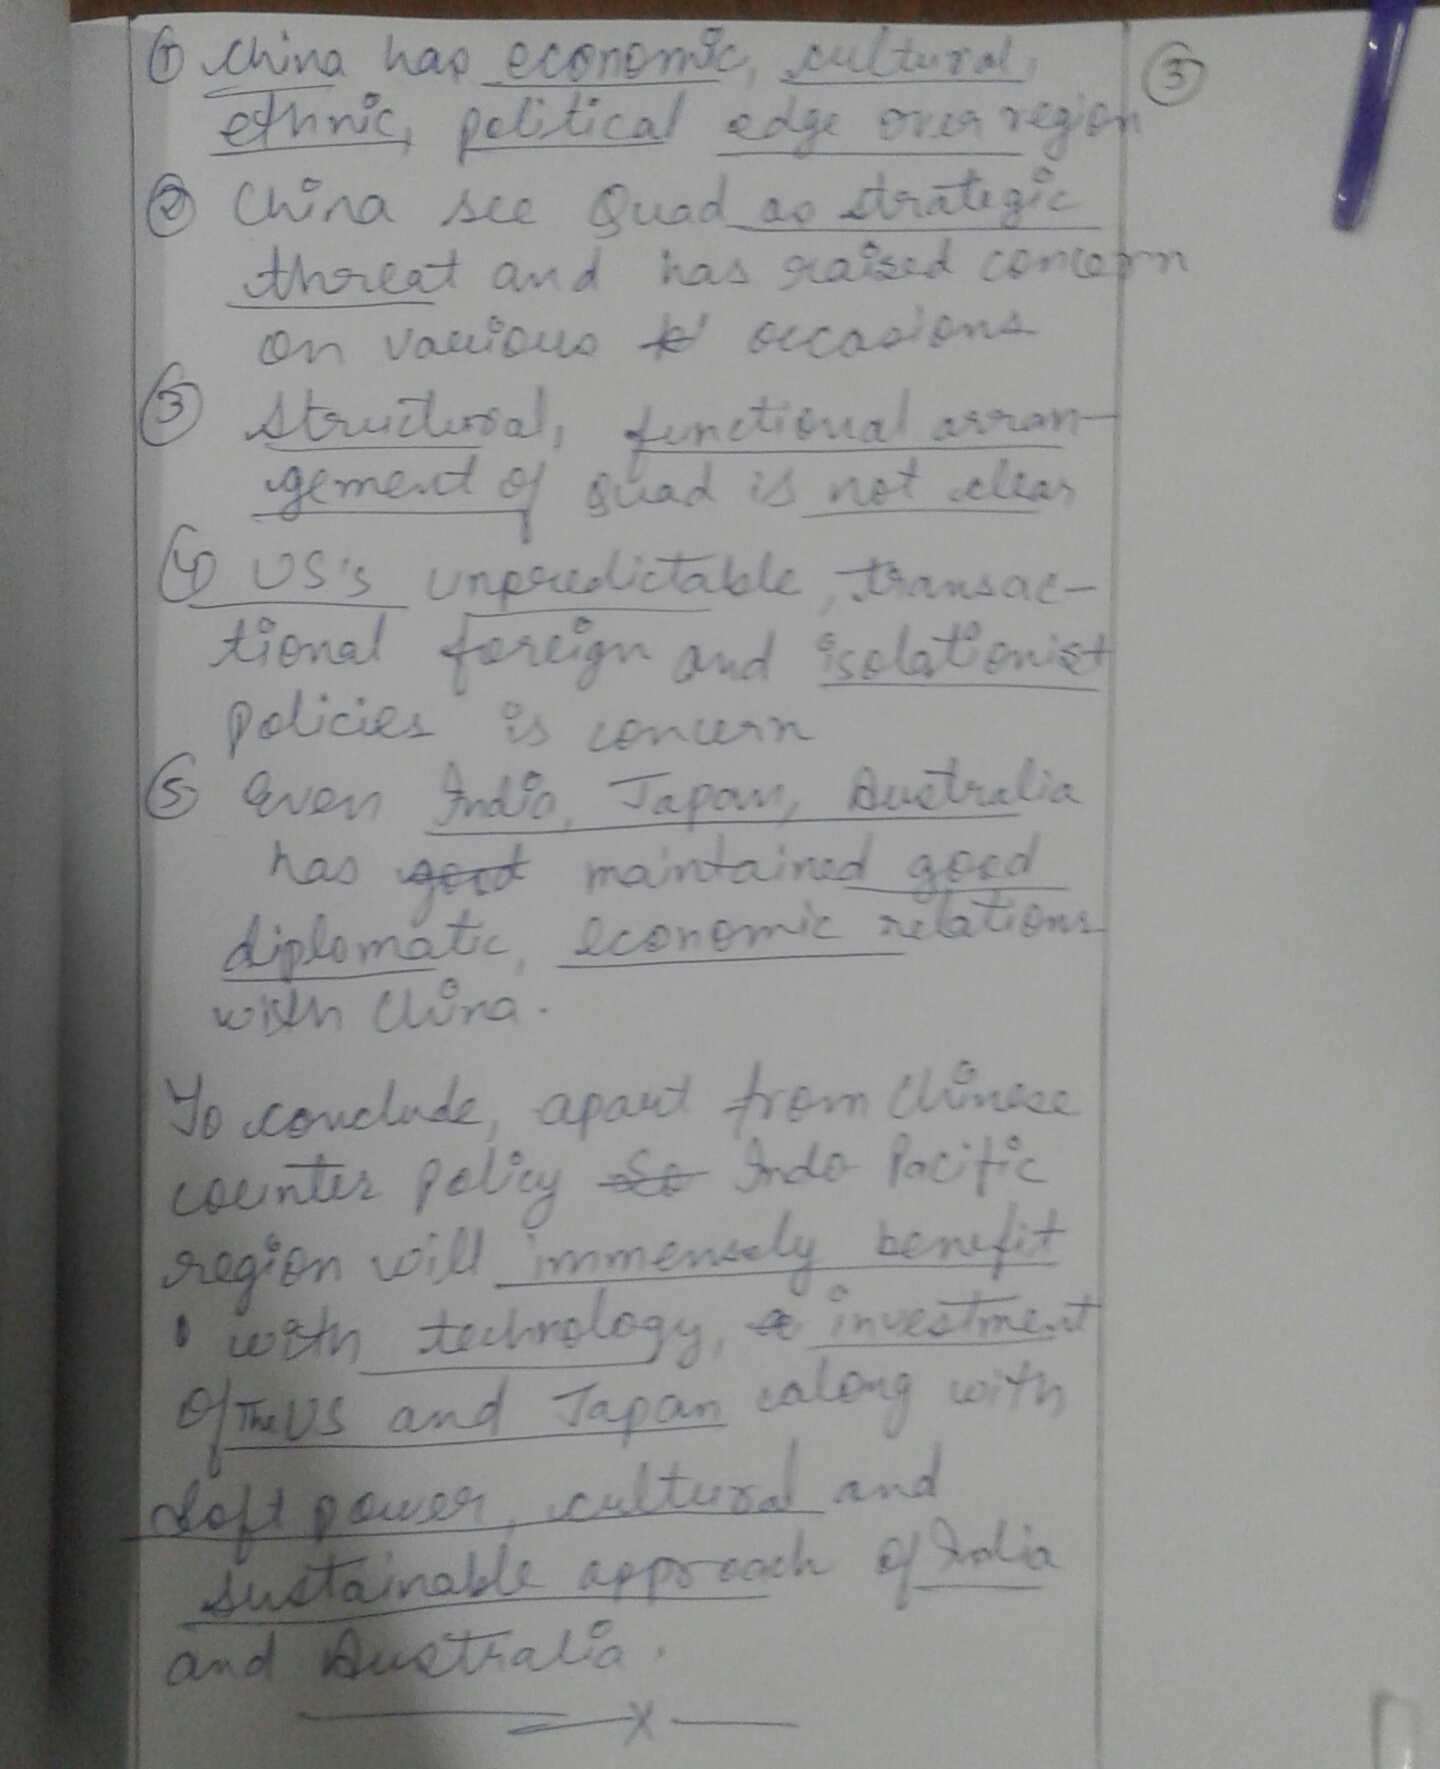 ① China has economic, cultural,
③
ethnic, political edge over region
② China see Quad as strategic
threat and has raised concern
on various occasions
③ Structural, functional arran-
gement of Quad is not clear
④ US's unpredictable, transac-
tional foreign and isolationist
policies is concern
⑤ Even India, Japan, Australia
has good maintained good
diplomatic, economic relations
with China.
To conclude, apart from Chinese
counter policy So Indo Pacific
region will immensely benefit
with technology, investment
of the US and Japan along with
soft power, cultural and
sustainable approach of India
and Australia.
— x —